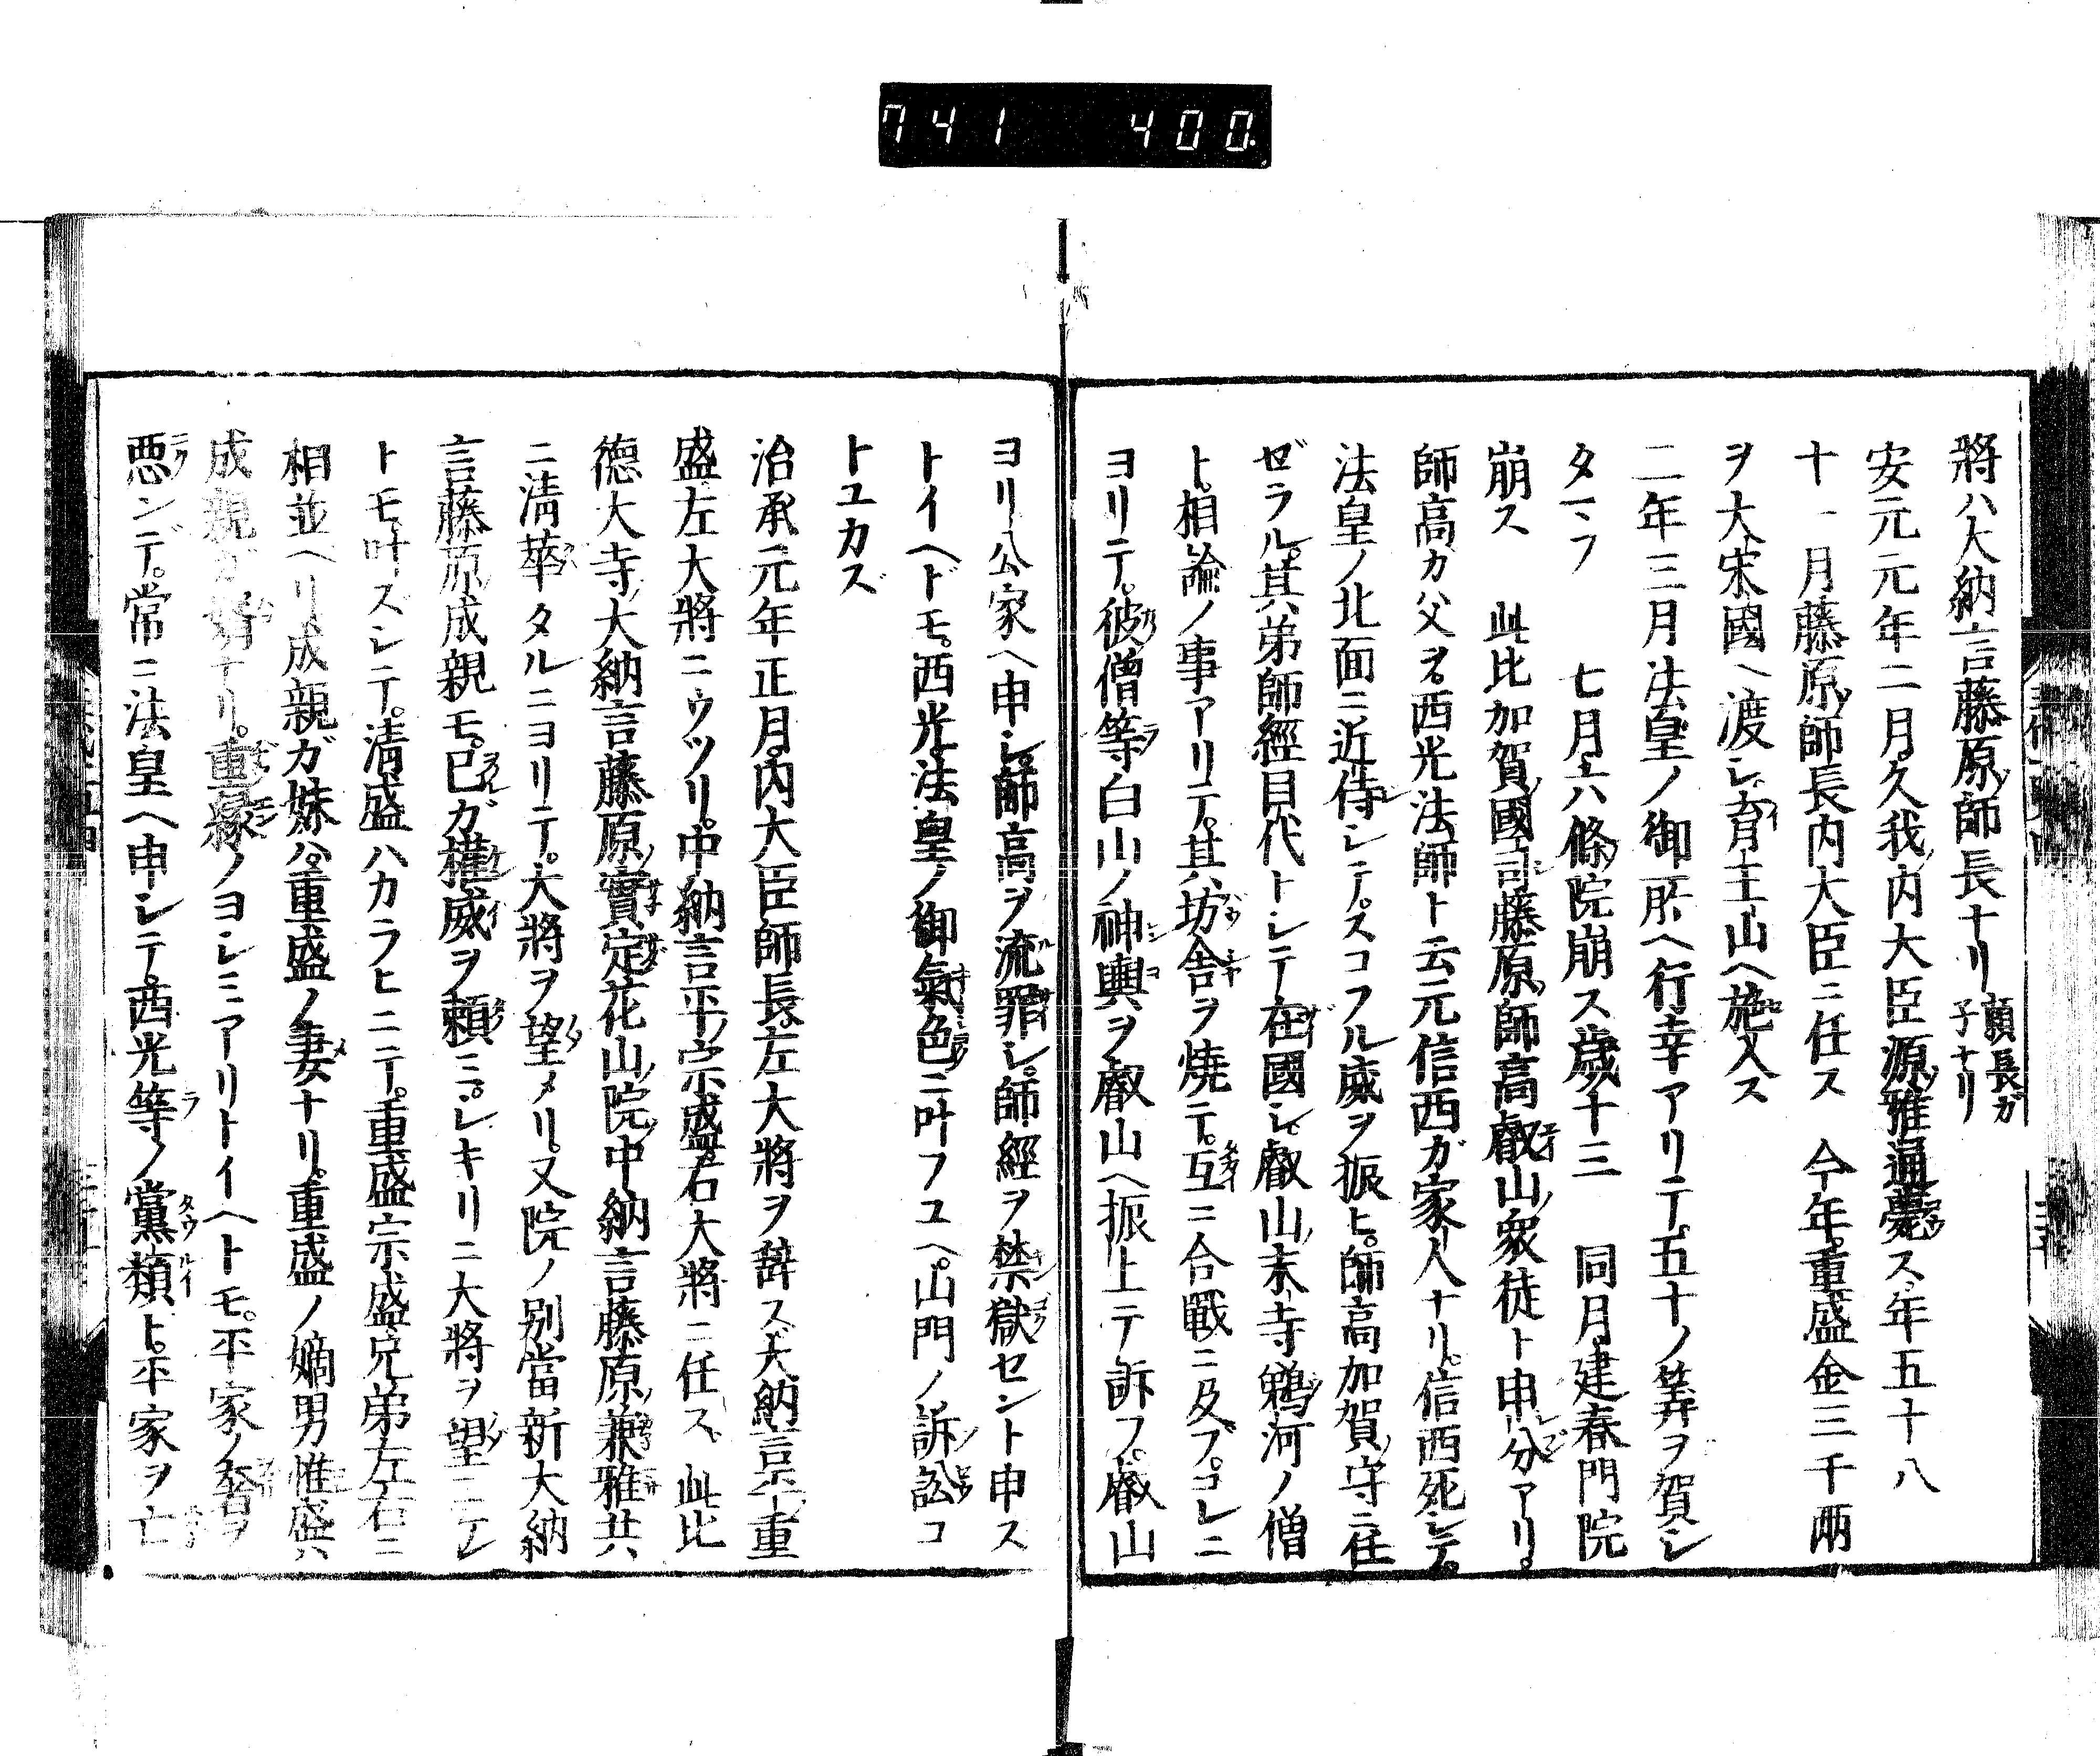 741 400
將ハ大納言藤原ノ師長ナリ 頼長ガ子ナリ
安元元年二月久我ノ内大臣源ノ雅通薨ス年五十八
十一月藤原ノ師長内大臣ニ任ス 今年重盛金三千兩
ヲ大宋國ヘ渡シ育王山ヘ施入ス
二年三月法皇ノ御所ヘ行幸アリテ五十ノ筭ヲ賀シ
タマフ 七月六條ノ院崩ス歳十三 同月建春門院
崩ス 此比加賀ノ國司藤原ノ師高叡山ノ衆徒ト申分アリ
師高カ父ヲバ西光法師ト云元信西ガ家人ナリ信西死シテ
法皇ノ北面ニ近侍シテスコフル威ヲ振ヒ師高加賀ノ守ニ任
ゼラル其弟師經目代トシテ在國シ叡山ノ末寺鵜河ノ僧
ト相論ノ事アリテ其坊舎ヲ焼テ互ニ合戰ニ及ブコレニ
ヨリテ彼僧等白山ノ神輿ヲ叡山ヘ振上テ訴フ叡山
ヨリ公家ヘ申シ師高ヲ流罪シ師經ヲ禁獄セント申ス
トイヘドモ西光法皇ノ御氣色ニ叶フユヘ山門ノ訴訟コ
トユカズ
治承元年正月内大臣師長左大將ヲ辭ス大納言平ノ重
盛左大將ニウツリ中納言平ノ宗盛右大將ニ任ス 此比
德大寺ノ大納言藤原ノ實定花山ノ院ノ中納言藤原ノ兼雅共
ニ淸華タルニヨリテ大將ヲ望メリ又院ノ別當新大納
言藤原ノ成親モ己ガ權威ヲ頼ミシキリニ大將ヲ望ニテレ
トモ叶ズシテ淸盛ハカラヒニテ重盛宗盛兄弟左右ニ
相並ヘリ成親ガ妹ハ重盛ノ妻ナリ重盛ノ嫡男惟盛ハ
成親ガ婿ナリ重縁ノヨシミアリトイヘトモ平家ノ奢ヲ
惡ンデ常ニ法皇ヘ申シテ西光等ノ黨類ト平家ヲ亡